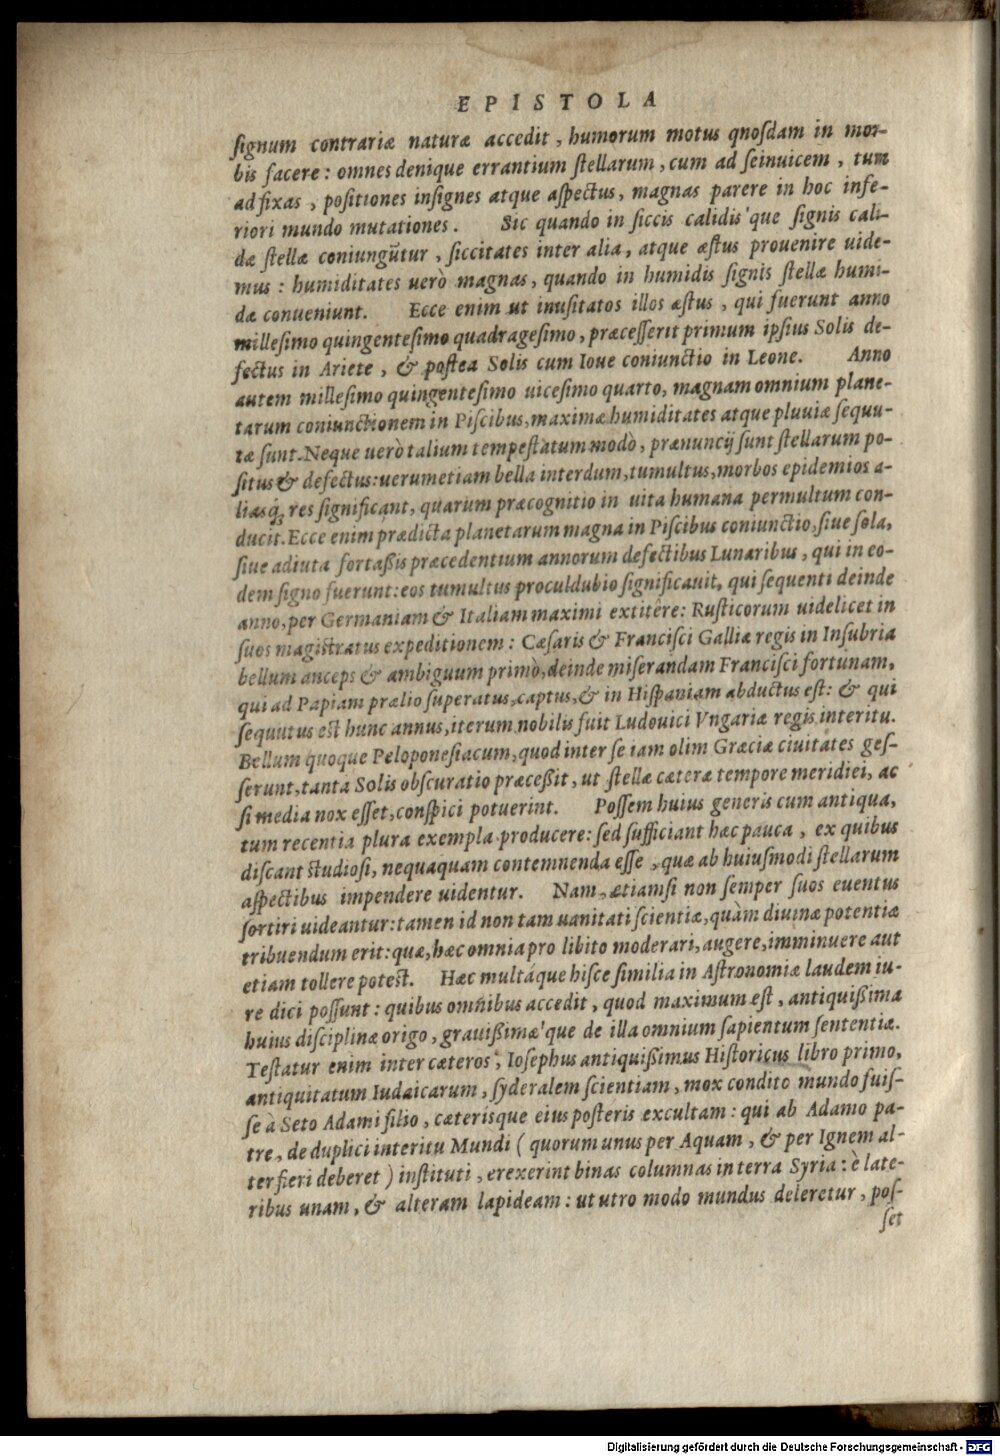 EPISTOLA
ſignum contrariæ naturæ accedit, humorum motus qnoſdam in mor-
bis facere: omnes denique errantium ſtellarum, cum ad ſeinuicem, tum
ad fixas, poſitiones inſignes atque aſpectus, magnas parere in hoc infe-
riori mundo mutationes. Sic quando in ſiccis calidis'que ſignis cali-
dæ ſtellæ coniungūtur, ſiccitates inter alia, atque æſtus prouenire uide-
mus: humiditates uerò magnas, quando in humidis ſignis ſtellæ humi-
dæ conueniunt. Ecce enim ut inuſitatos illos æſtus, qui fuerunt anno
milleſimo quingenteſimo quadrageſimo, præceſſerit primum ipſius Solis de-
fectus in Ariete, & poſtea Solis cum Ioue coniunctio in Leone. Anno
autem milleſimo quingenteſimo uiceſimo quarto, magnam omnium plane-
tarum coniunctionem in Piſcibus, maximæ humiditates atque pluuiæ ſequu-
tæ ſunt. Neque uerò talium tempeſtatum modò, prænuncij ſunt ſtellarum po-
ſitus & defectus: uerumetiam bella interdum, tumultus, morbos epidemios a-
liasq́; res ſignificant, quarum præcognitio in uita humana permultum con-
ducit. Ecce enim prædicta planetarum magna in Piſcibus coniunctio, ſiue ſola,
ſiue adiuta fortaßis præcedentium annorum defectibus Lunaribus, qui in eo-
dem ſigno fuerunt: eos tumultus proculdubio ſignificauit, qui ſequenti deinde
anno, per Germaniam & Italiam maximi extitêre: Ruſticorum uidelicet in
ſuos magiſtratus expeditionem: Cæſaris & Franciſci Galliæ regis in Inſubria
bellum anceps & ambiguum primò, deinde miſerandam Franciſci fortunam,
qui ad Papiam prælio ſuperatus, captus, & in Hiſpaniam abductus eſt: & qui
ſequutus eſt hunc annus, iterum nobilis fuit Ludouici Vngariæ regis interitu.
Bellum quoque Peloponeſiacum, quod inter ſe iam olim Græciæ ciuitates geſ-
ſerunt, tanta Solis obſcuratio præceßit, ut ſtellæ cæteræ tempore meridiei, ac
ſi media nox eſſet, conſpici potuerint. Poſſem huius generis cum antiqua,
tum recentia plura exempla producere: ſed ſufficiant hæc pauca, ex quibus
diſcant ſtudioſi, nequaquam contemnenda eſſe, quæ ab huiuſmodi ſtellarum
aſpectibus impendere uidentur. Nam, ætiamſi non ſemper ſuos euentus
ſortiri uideantur: tamen id non tam uanitati ſcientiæ, quàm diuinæ potentiæ
tribuendum erit: quæ, hæc omnia pro libito moderari, augere, imminuere aut
etiam tollere poteſt. Hæc multáque hiſce ſimilia in Aſtronomiæ laudem iu-
re dici poſſunt: quibus omnibus accedit, quod maximum eſt, antiquißima
huius diſciplinæ origo, grauißimæ'que de illa omnium ſapientum ſententiæ.
Teſtatur enim inter cæteros, Ioſephus antiquißimus Hiſtoricus libro primo,
antiquitatum Iudaicarum, ſyderalem ſcientiam, mox condito mundo fuiſ-
ſe à Seto Adami filio, cæterisque eius poſteris excultam: qui ab Adamo pa-
tre, de duplici interitu Mundi (quorum unus per Aquam, & per Ignem al-
ter fieri deberet) inſtituti, erexerint binas columnas in terra Syria: è late-
ribus unam, & alteram lapideam: ut utro modo mundus deleretur, poſ-
ſet
Digitalisierung gefördert durch die Deutsche Forschungsgemeinschaft - DFG